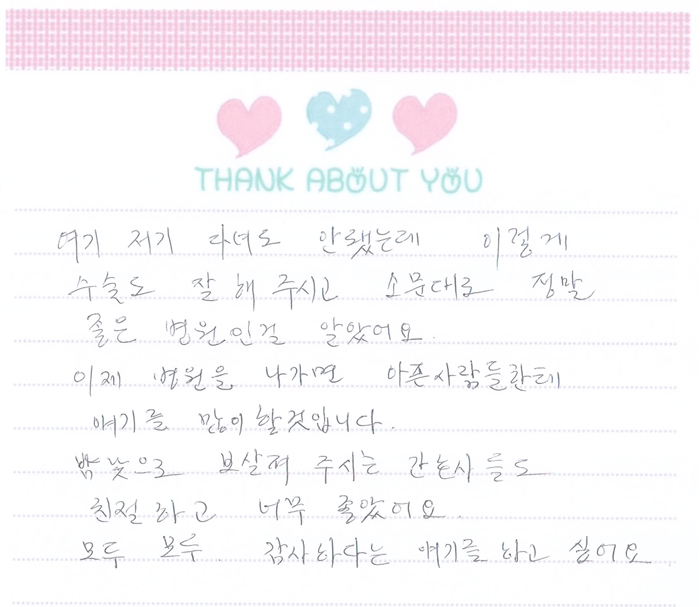 THANK ABOUT YOU
여기 저기 다녀도 안됐는데 이렇게
수술도 잘 해 주시고 소문대로 정말
좋은 병원인걸 알았어요.
이제 병원을 나가면 아픈사람들한테
얘기를 많이 할것입니다.
밤낮으로 보살펴 주시는 간호사들도
친절하고 너무 좋았어요.
모두 모두 감사하다는 얘기를 하고 싶어요